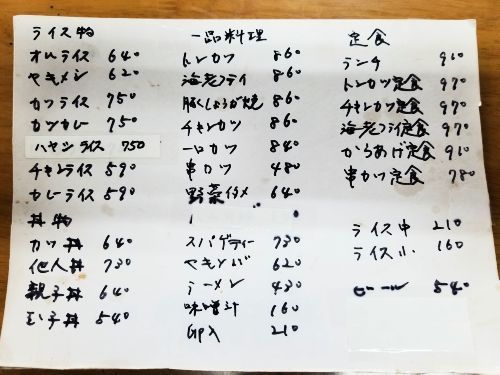 ライス物
オムライス 640
ヤキメシ 620
カツライス 750
カツカレー 750
ハヤシライス 750
チキンライス 590
カレーライス 590
丼物
カツ丼 640
他人丼 730
親子丼 640
玉子丼 540
一品料理
トンカツ 860
海老フライ 860
豚しょうが焼 860
チキンカツ 860
一口カツ 840
串カツ 480
野菜イタメ 640
スパゲティー 730
ヤキソバ 620
ラーメン 430
味噌汁 160
210
定食
ランチ 910
トンカツ定食 970
チキンカツ定食 970
海老フライ定食 970
からあげ定食 910
串カツ定食 780
ライス中 210
ライス小 160
ビール 540